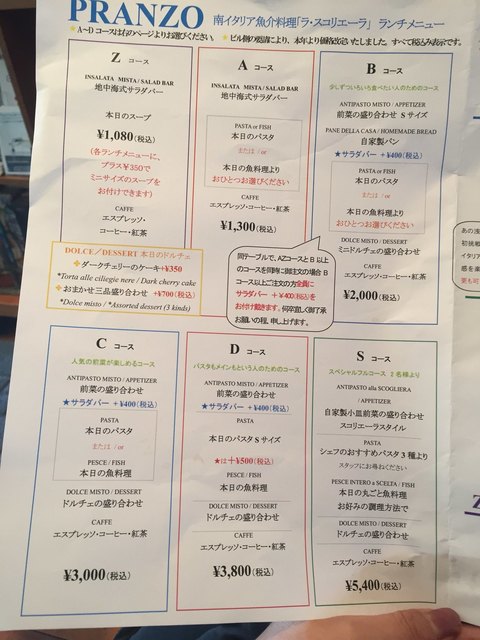 PRANZO 南イタリア魚介料理「ラ・スコリエーラ」 ランチメニュー
★A~D コースは右のページよりお選びください ★ビル側の要請により、本年より価格改定いたしました。すべて税込み表示です。
Z コース
INSALATA MISTA / SALAD BAR
地中海式サラダバー
本日のスープ
¥1,080(税込)
(各ランチメニューに、
プラス¥350で
ミニサイズのスープを
お付けできます)
CAFFE
エスプレッソ・
コーヒー・紅茶
A コース
INSALATA MISTA / SALAD BAR
地中海式サラダバー
PASTA or FISH
本日のパスタ
または / or
本日の魚料理より
おひとつお選びください
CAFFE
エスプレッソ・コーヒー・紅茶
¥1,300(税込)
B コース
少しずついろいろ食べたい人のためのコース
ANTIPASTO MISTO / APPETIZER
前菜の盛り合わせ S サイズ
PANE DELLA CASA / HOMEMADE BREAD
自家製パン
★サラダバー +¥400(税込)
PASTA or FISH
本日のパスタ
または / or
本日の魚料理より
おひとつお選びください
DOLCE MISTO / DESSERT
ミニドルチェの盛り合わせ
CAFFE
エスプレッソ・コーヒー・紅茶
¥2,000(税込)
DOLCE/DESSERT 本日のドルチェ
ダークチェリーのケーキ+¥350
*Torta alle ciliegie nere / Dark cherry cake
おまかせ三品盛り合わせ +¥700(税込)
*Dolce misto / *Assorted dessert (3 kinds)
同テーブルで、AZコースと B 以上
のコースを同時に御注文の場合 B
コース以上ご注文の方全員に
サラダバー +¥400(税込)を
お付け戴きます。何卒宜しく御了承
お願いの程、申し上げます。
C コース
人気の前菜が楽しめるコース
ANTIPASTO MISTO / APPETIZER
前菜の盛り合わせ
★サラダバー +¥400(税込)
PASTA
本日のパスタ
または / or
PESCE / FISH
本日の魚料理
DOLCE MISTO / DESSERT
ドルチェの盛り合わせ
CAFFE
エスプレッソ・コーヒー・紅茶
¥3,000(税込)
D コース
パスタもメインもという人のためのコース
ANTIPASTO MISTO / APPETIZER
前菜の盛り合わせ
★サラダバー +¥400(税込)
PASTA
本日のパスタ S サイズ
★は+¥500(税込)
PESCE / FISH
本日の魚料理
DOLCE MISTO / DESSERT
ドルチェの盛り合わせ
CAFFE
エスプレッソ・コーヒー・紅茶
¥3,800(税込)
S コース
スペシャルフルコース 2 名様より
ANTIPASTO alla SCOGLIERA
/ APPETIZER
自家製小皿前菜の盛り合わせ
スコリエーラスタイル
PASTA
シェフのおすすめパスタ 3 種より
スタッフにお尋ねください
PESCE INTERO a SCELTA / FISH
本日の丸ごと魚料理
お好みの調理方法で
DOLCE MISTO / DESSERT
ドルチェの盛り合わせ
CAFFE
エスプレッソ・コーヒー・紅茶
¥5,400(税込)
あの浅
初挑戦
イタリア
感を楽
更も可